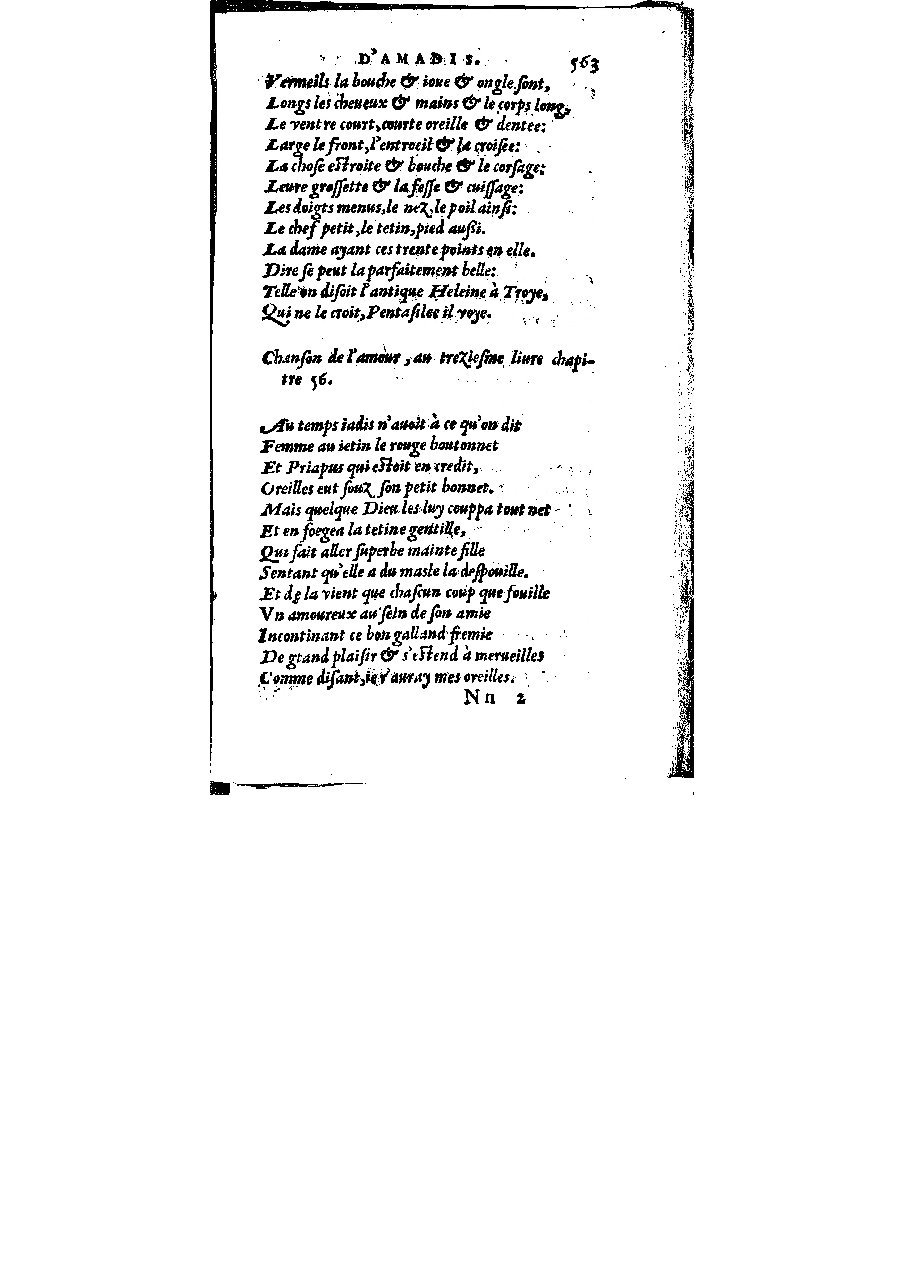 D'AMADIS. 563
Vermeils la bouche & ioue & ongle ſont,
Longs les cheueux & mains & le corps long,
Le ventre court, courte oreille & dentee:
Large le front, l'entroeil & la croiſee:
La choſe eſtroite & bouche & le corſage:
Leure groſſette & la feſſe & cuiſſage:
Les doigts menus, le nez, le poil ainſi:
Le chef petit, le tetin, pied auſſi.
La dame ayant ces trente points en elle.
Dire ſe peut la parfaitement belle:
Telle on diſoit l'antique Heleine à Troye,
Qui ne le croit, Pentaſilee il voye.
Chanſon de l'amour, au treZieſme liure chapi-
tre 56.
Au temps iadis n'auoit à ce qu'on dit
Femme au tetin le rouge boutonnet
Et Priapus qui eſtoit en credit,
Oreilles eut ſouz ſon petit bonnet.
Mais quelque Dieu les luy couppa tout net
Et en forgea la tetine gentille,
Qui fait aller ſuperbe mainte fille
Sentant qu'elle a du maſle la deſpouille.
Et de la vient que chaſcun coup que fouille
Vn amoureux au ſein de ſon amie
Incontinant ce bon galland fremie
De grand plaiſir & s'eſtend à merueilles
Comme diſant, ie r'auray mes oreilles.
Nn 2